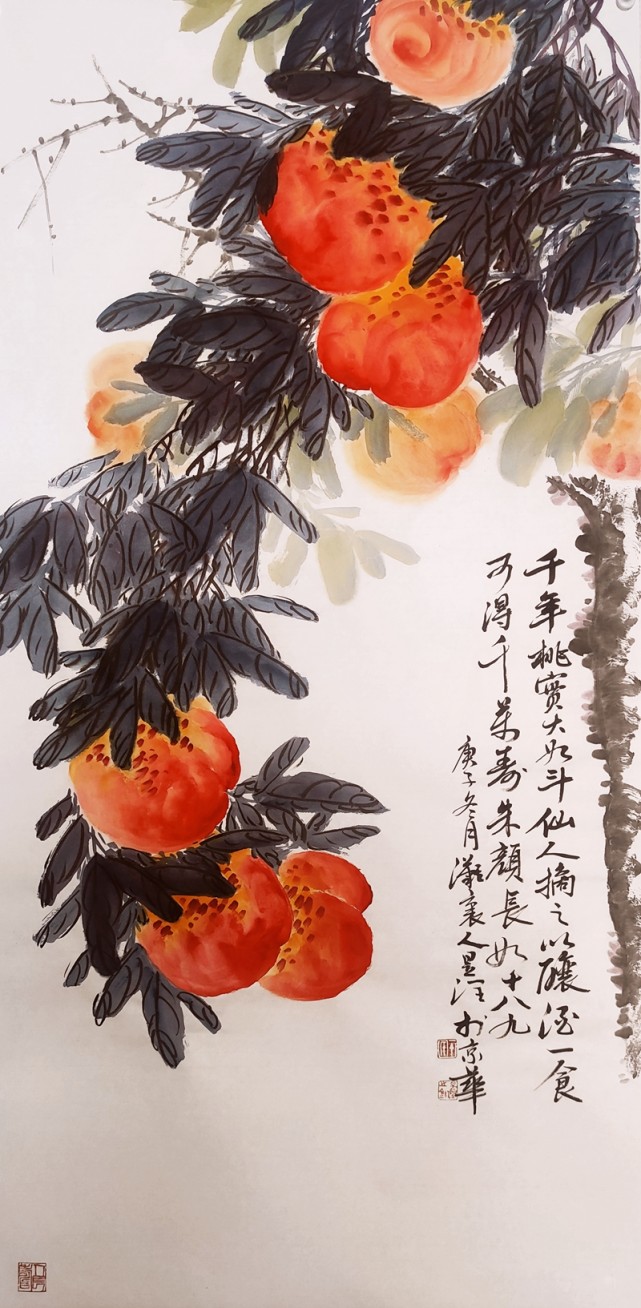 千年桃實大如斗仙人摘之以釀酒一食
可得千萬壽朱顏長如十八九
庚子冬月 人昱 於京華